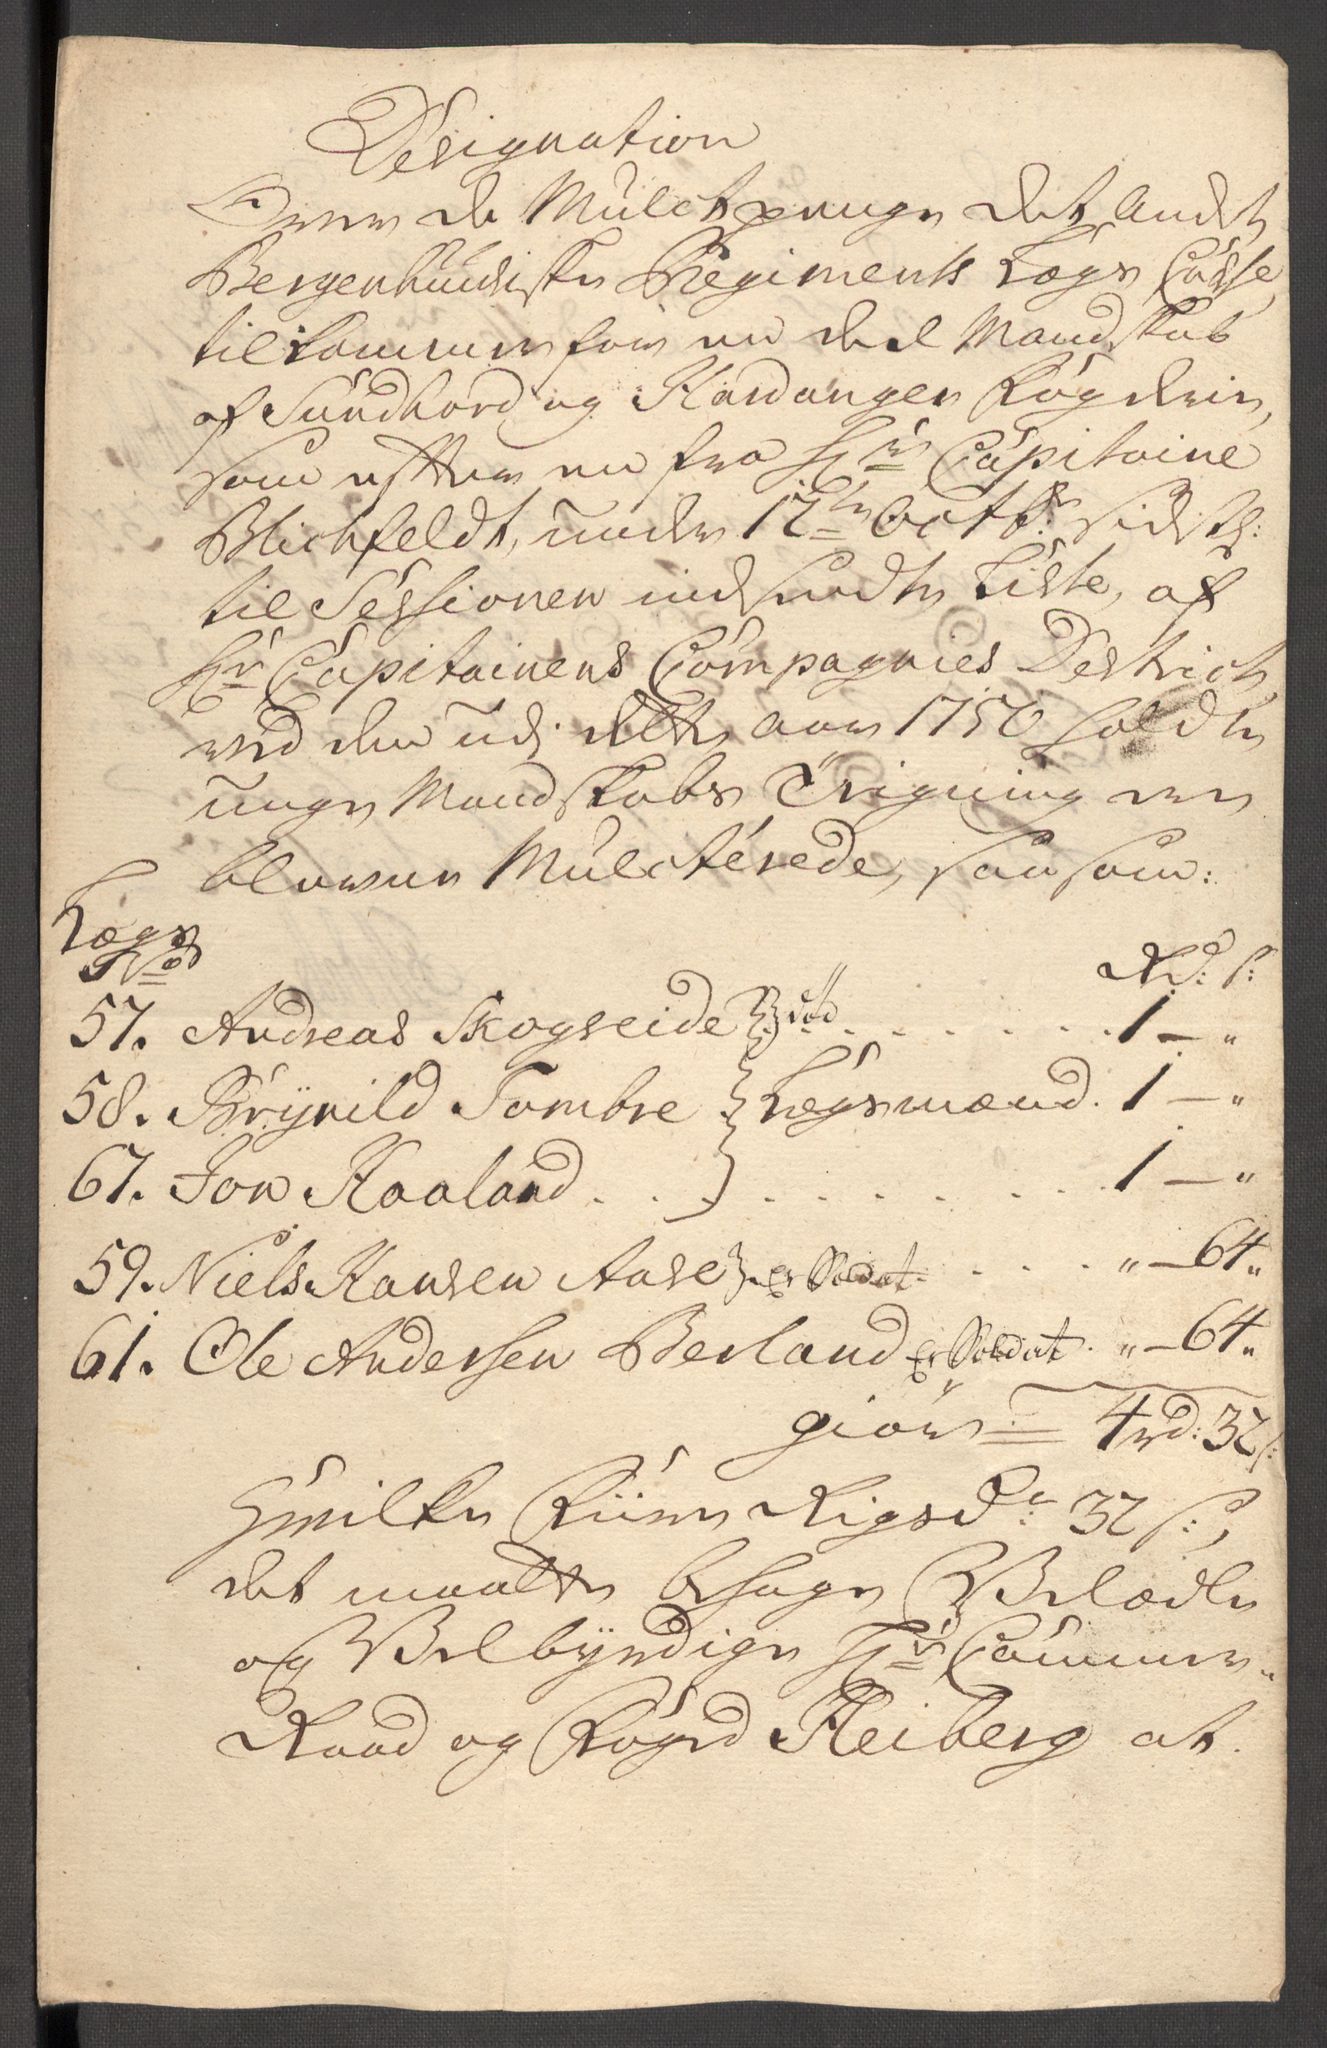 Designation
Over de Mulctpenge det Andet
Bergenhuusiske Regiments Lægs Casse,
tilkommer for en deel Mandskab
af Sundhord og Hardanger Fogderie,
som efter en fra Hr Capitaine
Blichfeldt, under 12te Octbr sidstl:
til Sessionen indsendte Liste, af
Hr Capitainens Compagnies Destrict,
ved den udj dette aar 1750 holdte
unge Mandskabs Eigning ere
blevne Mulcterede, saasom:
Lægs
No
Rd: s:
57. Andreas Skogseide død . . . . . . . 1 — "
58. Brynild Tombre } Lægsmænd. 1 — "
67. Jon Haaland . . . } . . . . . . . 1 — "
59. Niels Hansen Aase er Soldat . . . . " — 64 "
61. Ole Andersen Berland er Soldat . " — 64 "
giør = 4 rd: 32 s:
Hvilke Fiire Rigsdr 32 s:,
det maatte behage Velædle
og Velbyrdige Hr Commerce-
Raad og Fogd Heiberg at